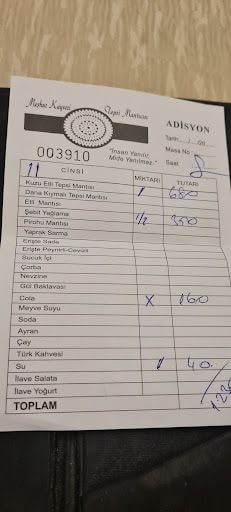 Meşhur Kayseri Tepsi Mantıcısı
ADİSYON
Tarih: / /20
003910
"İnsan Yanılır,
Mide Yanılmaz."
Masa No
Saat
11 CİNSİ MİKTARI TUTARI
Kuzu Etli Tepsi Mantısı
Dana Kıymalı Tepsi Mantısı 1 680
Etli Mantısı
Şebit Yağlama 1/2 350
Piruhu Mantısı
Yaprak Sarma
Erişte Sade
Erişte Peynirli-Cevizli
Sucuk İçi
Çorba
Nevzine
Gül Baklavası
Cola X 160
Meyve Suyu
Soda
Ayran
Çay
Türk Kahvesi
Su 1 40
İlave Salata
İlave Yoğurt
TOPLAM